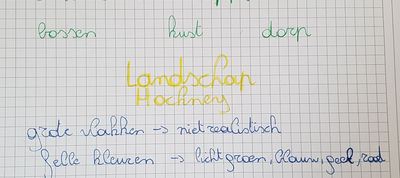 bossen kust dorp
Landschap
Hockney
grote vlakken → niet realistisch
felle kleuren → lichtgroen, blauw, geel, rood